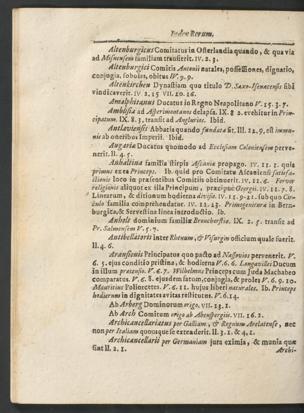 Index Rerum.
Altenburgicus Comitatus in Osterlandia quando, & qua via
ad Misnensem familiam transierit. IV. 2. 3.
Altenburgici Comitis Antonii natales, possessiones, dignatio,
conjugia, soboles, obitus IV. 9. 9.
Altenkirchen Dynastiam quo titulo D. Saxo-Isenacensis sibi
vindicaverit. IV. 2. 15 VII. 10. 16.
Amalphitanus Ducatus in Regno Neapolitano V. 25. 3. 7.
Ambosia ad delapsa. IX 8 2. evehitur in Prin-
cipatum. IX. 8. 3, transit ad Ibid.
Abbatia quando fundata sit. III. 22. 9, est
ab oneribus Imperii. Ibid.
Augaria Ducatus quomodo ad Ecclesiam Coloniensem perve-
nerit. II. 4. 5.
Anhaltina familia stirpis Ascaniæ propago. IV. 11. 1. quis
primus ex ea Princeps. Ib. quid pro Comitatu Ascaniensi satisfa-
ctionis loco in præsectibus obtinuerit. IV. 12. 4. Fervor
religionis aliquot ex illa Principum, præcipue Georgii. IV. 11. 7. 8.
Linearum, & ditionum hodierna divisio. IV. 12. 5-9. 12. sub quo Cir-
culo familia comprehendatur. IV. 12. 13 Primogenitura in Bern-
burgica, & Servestina linea introducta. Ib.
Anholt dominium familiæ Bronchorstiæ. IX. 2. 5. transit ad
Pr. Salmensem V. 5. 7.
inter Rhenum, & Visurgin officium quale fuerit.
II. 4. 6.
Arausionis Principatus quo pacto ad Nassovios pervenerit. V.
6. 5. ejus conditio pristina, & hodierna V. 6. 6. Ducum
in illum prætensio. V. 6. 7. Wilhelmus Princeps cum Juda Machabeo
comparatus. V. 6. 8. ejusdem fatum, conjugia, & proles V. 6. 9. 10.
Mauricius Poliorcetes. V. 6. 11. hujus liberi naturales. Ib. Princeps
hodiernus in dignitates avitas restitutus. V. 6. 14.
Ab Arberg Dominorum origo. VII. 23. 1.
Ab Arch Comitum origo ab VII. 16. 2.
Archicancellariatus per Galliam, & Regnum Arelatense, nec
non per Italiam quousque se extenderit. II. 3 1. & 4 1.
Archicancellarii per Germaniam jura eximia, & munia quæ
sint II. 2. 1.
Archi-